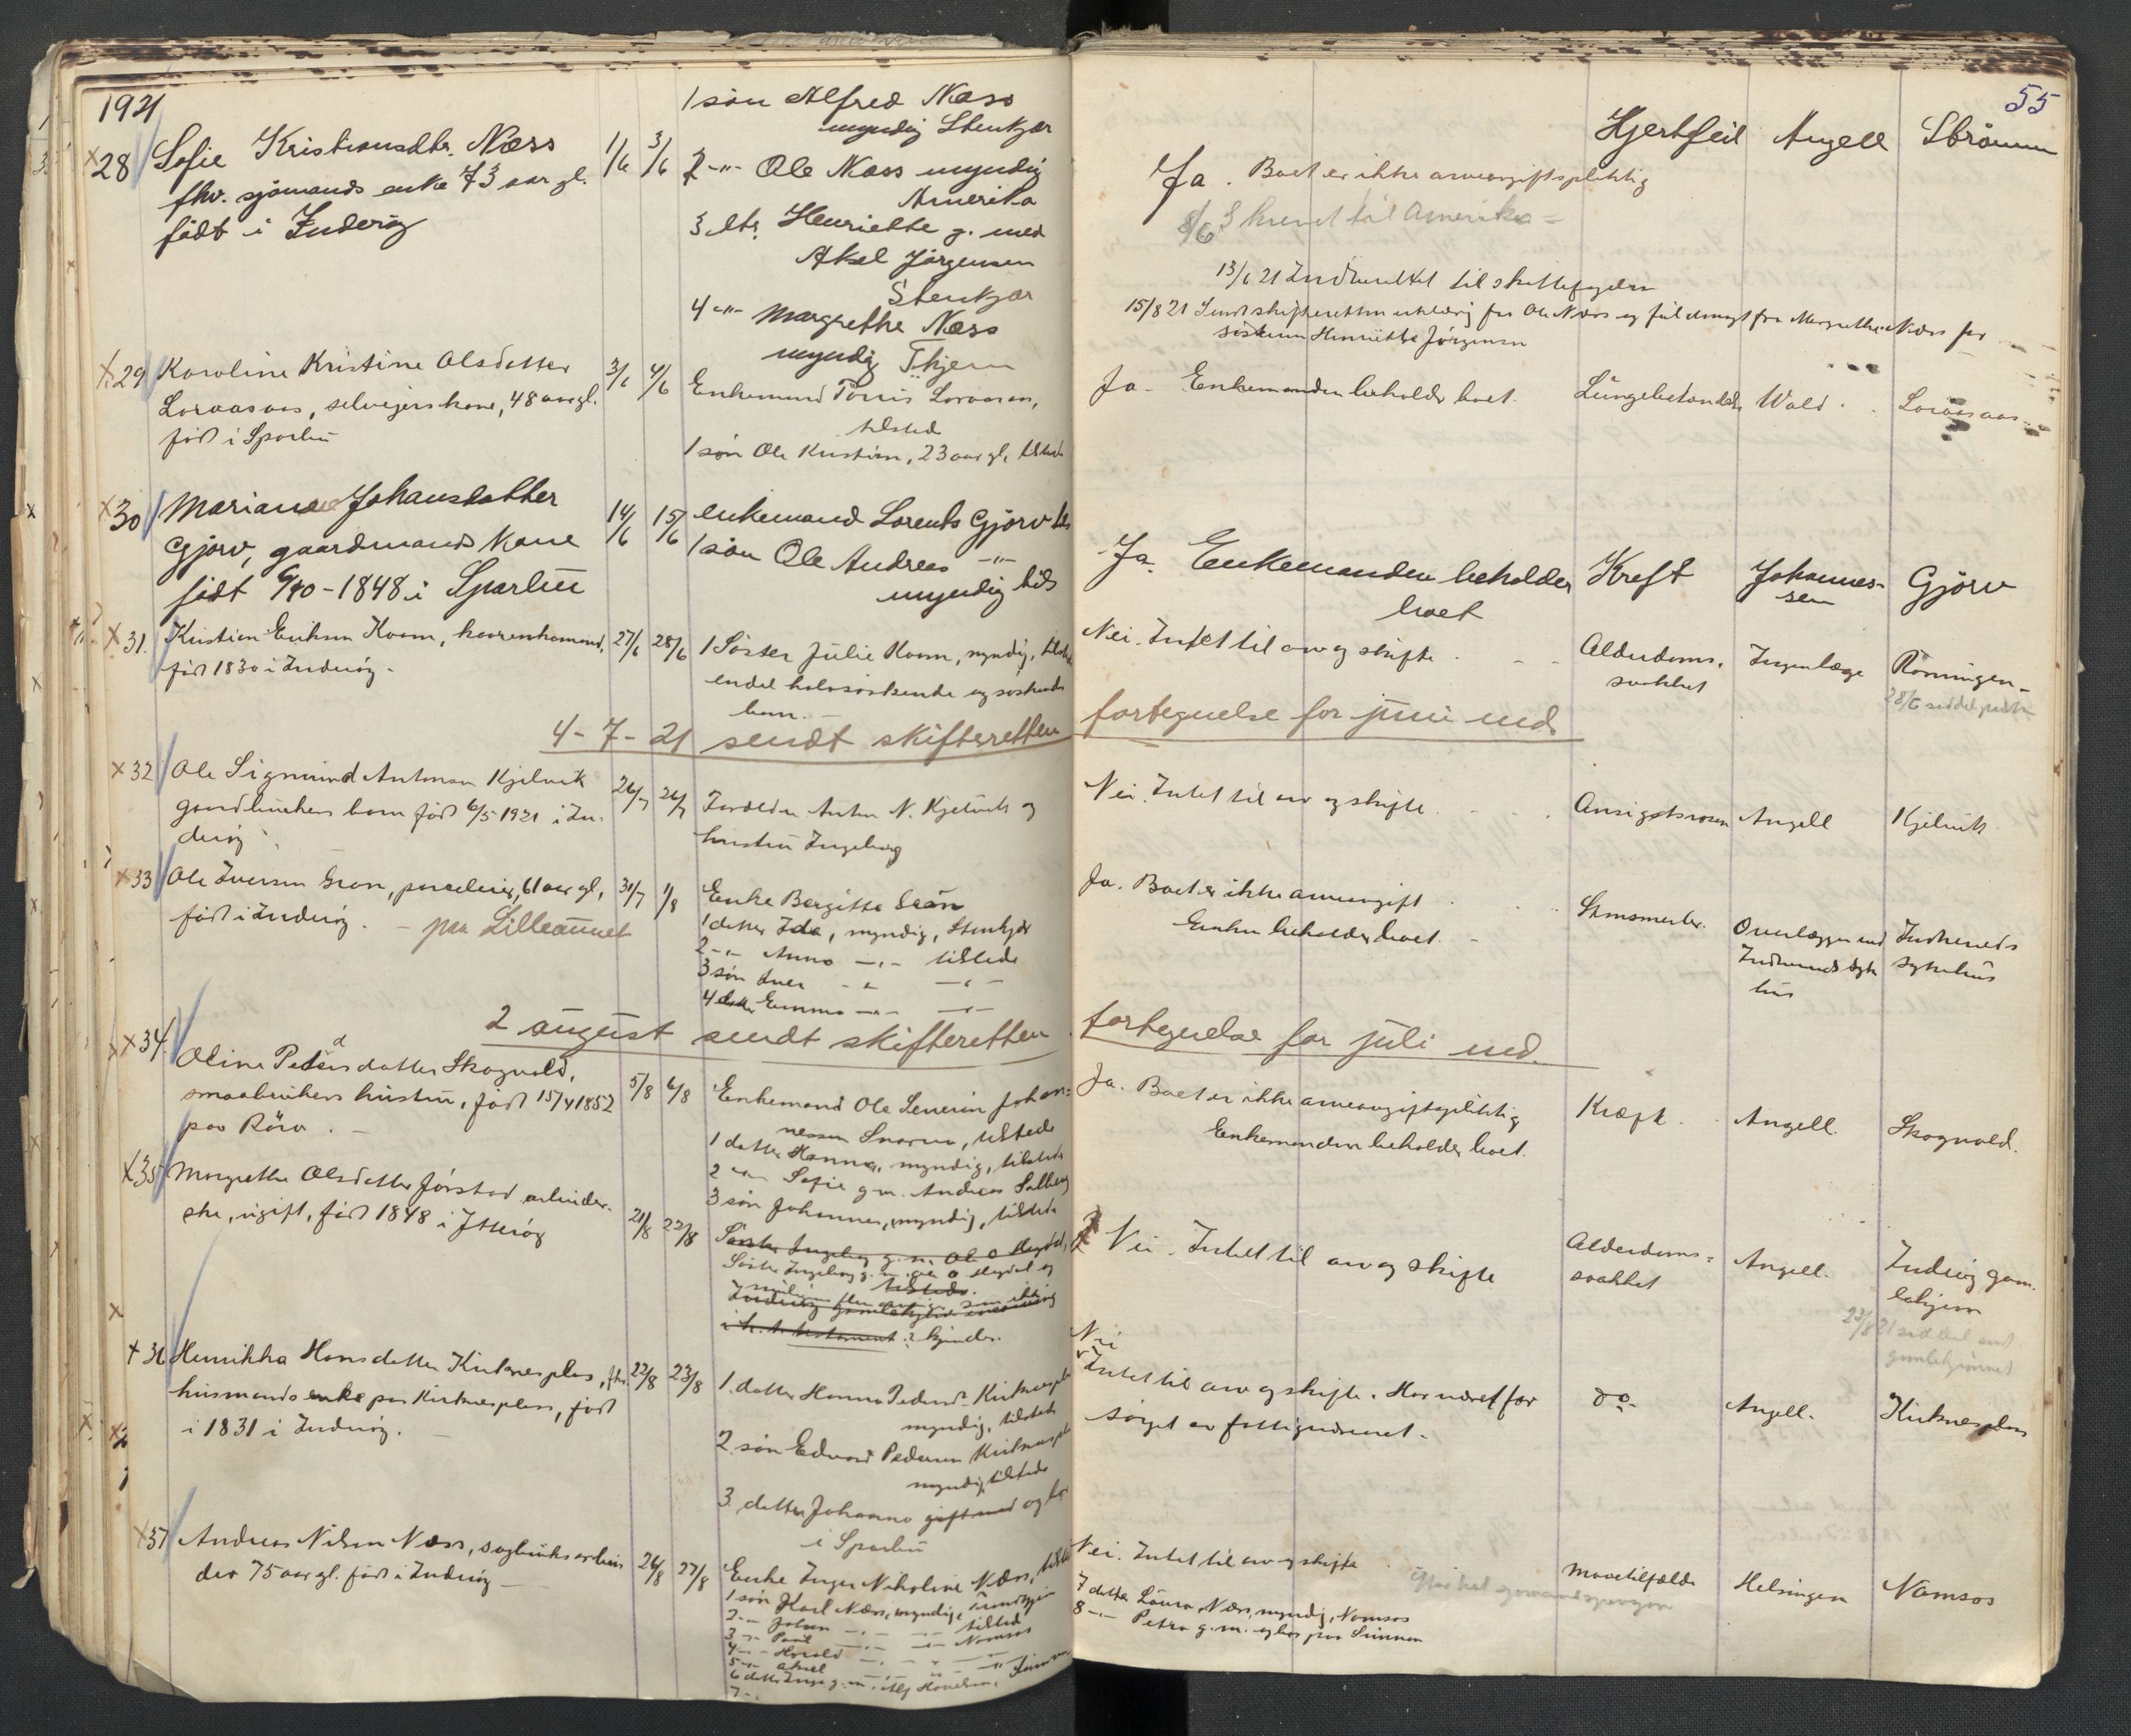 1921
55
28 Sofie Kristiansdtr. Næss
fhv. sjømands enke 73 aar gl.
født i Inderøy
1/6 3/6
1 søn Alfred Næss
myndig Stenkjær
2 -"- Ole Næss myndig
Amerika
3 dtr. Henriette g. med
Aksel Jörgensen
Stenkjær
4 -"- Margrethe Næss
myndig Thjem
Ja. Boet er ikke arveavgiftspliktig
8/6 Skrevet til Amerika
13/6 21 Indberettet til skattefogden
15/8 21 Sendt skifteretten erklæring fra Ole Næss og fuldmagt fra Margrethe Næss for
søsteren Henriette Jörgensen
Hjertfeil
Angell
Strömm
29 Karoline Kristine Olsdatter
Loraasaas, selveierskone, 48 aar gl.
født i Sparbu
3/6 4/6
Enkemand Tönnis Loraasen,
tilsted
1 søn Ole Kristian, 23 aar gl, tilstede
Ja - Enkemanden beholder boet.
Lungebetændelse
Wald
Loraasaas
30 Marianne Johansdatter
Gjörv, gaardmands kone
født 6/10-1848 i Sparbu
14/6 15/6
enkemand Lorents Gjörv tils
1 søn Ole Andreas -"-
myndig tils
Ja. Enkemanden beholder
boet
Kreft
Johannes-
sen
Gjörv
31. Kristian Eriksen Koam, kaarenkemand,
født 1830 i Inderøy -
27/6 28/6
1 Søster Julie Koam, myndig, tilstede
endel halvsøskende og søskende
barn.
Nei. Intet til arv og skifte
Alderdoms-
svakhet
Ingen læge
Rönningen -
28/6 seddel
4-7-21 sendt skifteretten fortegnelse for juni md.
32 Ole Sigmund Antonsen Kjelvik
gardbrukers barn født 6/5 1921 i In-
derøy
26/7 26/7
Forældre Anton N. Kjelvik og
hustru Ingeborg
Nei. Intet til arv og skifte
Ansigtsrosen
Angell
Kjelvik
33 Ole Iversen Gran, parceleier, 61 aar gl,
født i Inderøy. - paa Lilleaunet
31/7 1/8
Enke Bergitte Gran
1 datter Ida, myndig, Stenkjær
2 -"- Anna -"- tilstede
3 søn Iver -"- -"-
4 datter Emma -"- -"-
Ja. Boet er ikke arveavgift
Enken beholder boet.
Overlægen ved
Indherreds syke
hus
Indherreds
sykehus
2 august sendt skifteretten fortegnelse for juli md.
34. Oline Petersdatter Skogvold,
smaabrukers hustru, født 15/4 1852
paa Röra.
5/8 6/8
Enkemand Ole Severin Johan-
nessen Snarvo, tilstede
1 datter Hanna, myndig, tilstede
2 -"- Sofie g.m. Andreas Salberg
3 søn Johannes, myndig, tilstede
Ja. Boet er ikke arveavgiftspliktig
Enkemanden beholder boet.
Kræft
Angell.
Skogvold.
35 Margrethe Olsdatter Jörstad arbeider-
ske, ugift, født 1848 i Ytterøy
21/8 22/8
Søster Ingeborg g.m. Ole O Høydal,
Søster Ingeborg g.m. Ole O Høydal og
tilstede.
kjender.
Nei - Intet til arv og skifte
Alderdoms-
svakhet
Angell.
Inderøy gam-
lehjem
23/8 21 seddel sendt
gamlehjemmet
36 Henrikka Hansdatter Kirknesplas, fhv.
husmands enke paa Kirknesplass, født
i 1831 i Inderøy.
22/8 23/8
1. datter Hanna Pedersd. Kirknespl
myndig, tilstede
2 søn Edvard Pedersen Kirknespl
myndig tilstede
3. datter Johanna gift med og bor
i Sparbu
Nei
Intet til arv og skifte. Har været for
sørget av fattigvæsenet.
do.
Angell.
Kirknesplass
37 Andreas Nilsen Næss, sagbruksarbei
der 75 aar gl. født i Inderøy
26/8 27/8
Enke Inger Nikoline Næss, tilsted
1 søn Karl Næss, myndig, Trondhjem
2 -"- Johan -"- tilsted
3 -"- Paul -"- Namsos
4 -"- Harald -"-
5 -"- Aksel -"-
6 datter Inga g.m. Alf Hovelsen,
7 -"-
Nei. Intet til arv og skifte
7 datter Laura Næss, myndig, Namsos
8 -"- Petra g.m. og bor paa Sunnan
Mavetilfælde
Helsingen
Namsos